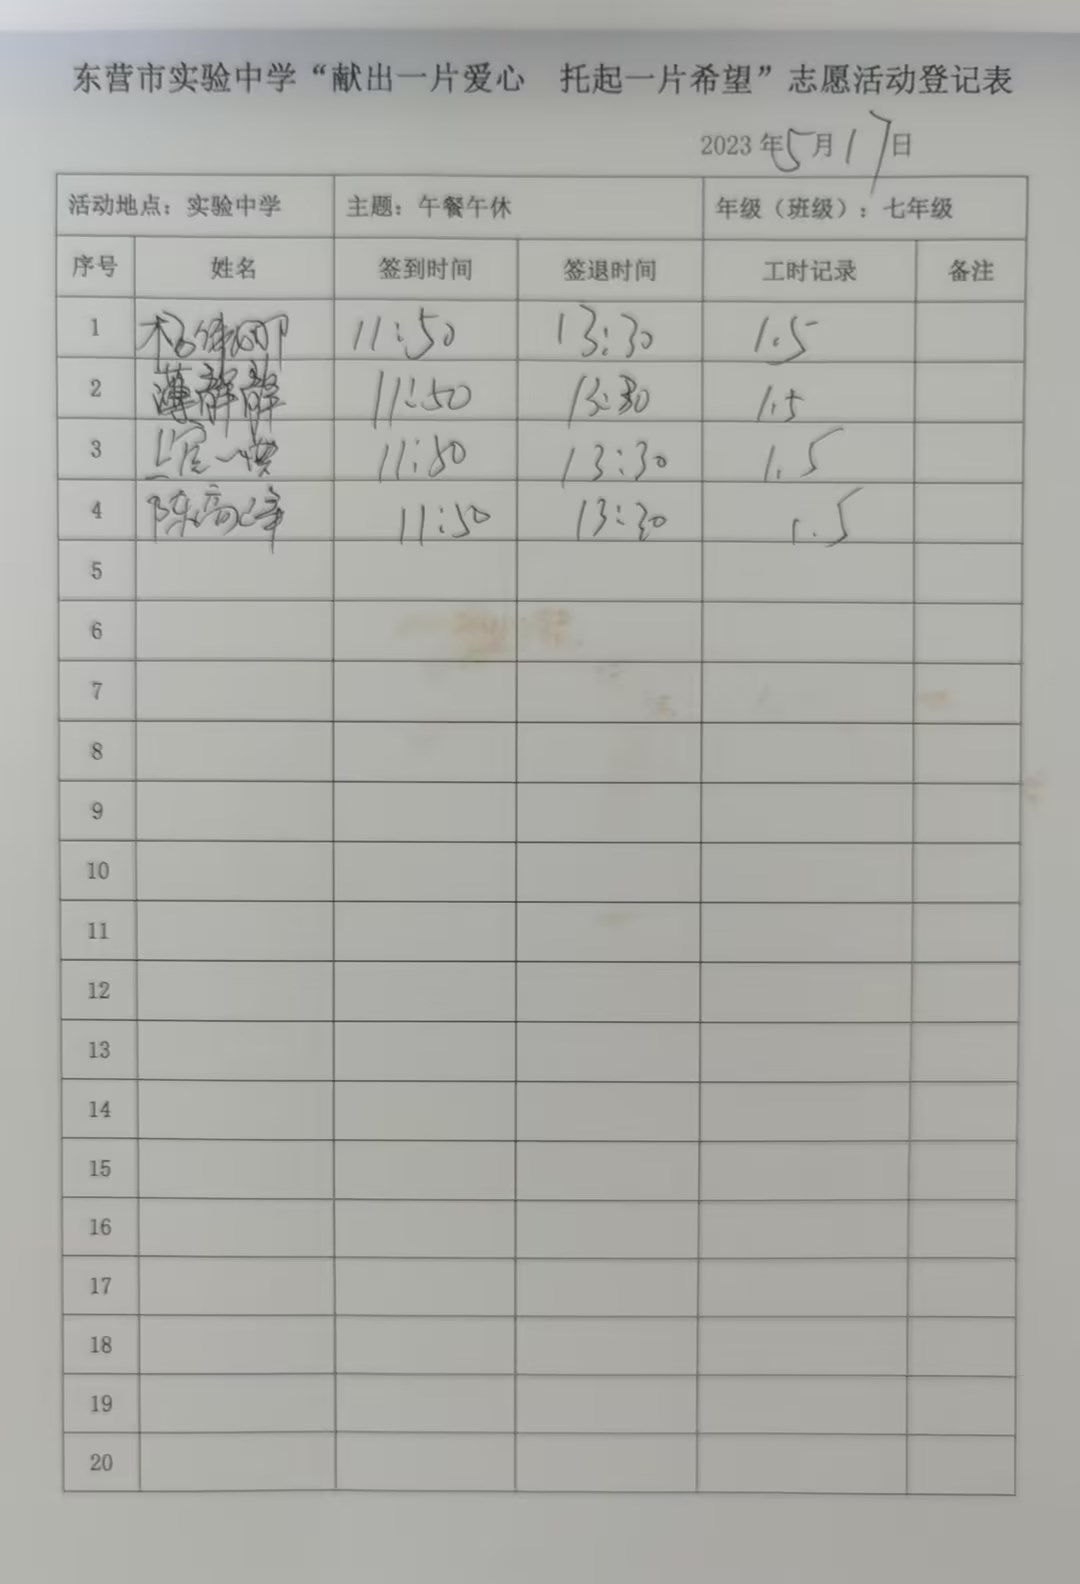 东营市实验中学“献出一片爱心 托起一片希望”志愿活动登记表
2023年5月17日
活动地点：实验中学 主题：午餐午休 年级（班级）：七年级
序号 姓名 签到时间 签退时间 工时记录 备注
1 11:50 13:30 1.5
2 薄静静 11:50 13:30 1.5
3 11:50 13:30 1.5
4 陈高峰 11:50 13:30 1.5
5
6
7
8
9
10
11
12
13
14
15
16
17
18
19
20